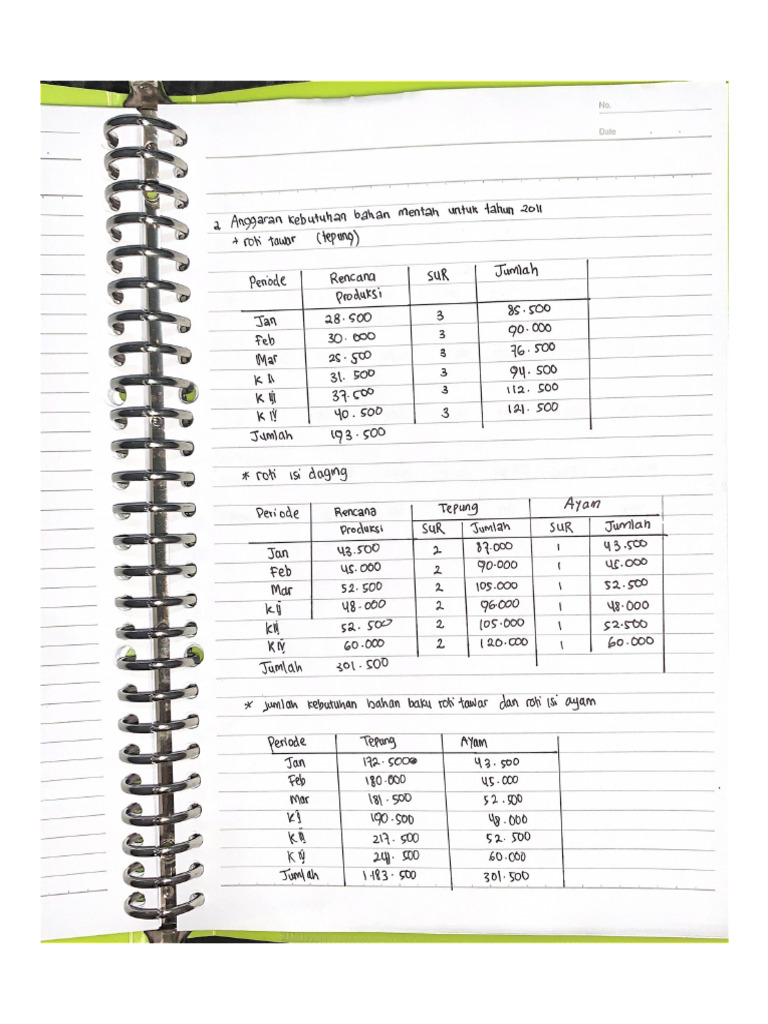 No.
Date
2 Anggaran kebutuhan bahan mentah untuk tahun 2011
+ roti tawar (tepung)
Periode Rencana Produksi SUR Jumlah
Jan 28.500 3 85.500
Feb 30.000 3 90.000
Mar 25.500 3 76.500
K II 31.500 3 94.500
K III 37.500 3 112.500
K IV 40.500 3 121.500
Jumlah 193.500
* roti isi daging
Periode Rencana Tepung Ayam
Produksi SUR Jumlah SUR Jumlah
Jan 43.500 2 87.000 1 43.500
Feb 45.000 2 90.000 1 45.000
Mar 52.500 2 105.000 1 52.500
K II 48.000 2 96.000 1 48.000
K III 52.500 2 105.000 1 52.500
K IV 60.000 2 120.000 1 60.000
Jumlah 301.500
* jumlah kebutuhan bahan baku roti tawar dan roti isi ayam
Periode Tepung Ayam
Jan 172.500 43.500
Feb 180.000 45.000
Mar 181.500 52.500
K II 190.500 48.000
K III 217.500 52.500
K IV 241.500 60.000
Jumlah 1.183.500 301.500